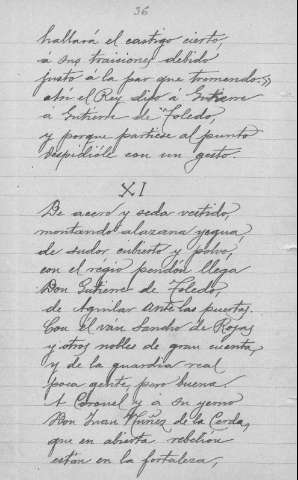 36
hallará el castigo cierto,
a sus traiciones debido
justo á la par que tremendo."
así el Rey dijo á Gutierre
á Gutierre de Toledo,
y porque partiese al punto
despidióle con un gesto.
XI
De acero y seda vestido,
montando alazana yegua,
de sudor cubierto y polvo,
con el régio pendón llega
Don Gutierre de Toledo,
de Aguilar ante las puertas.
Con él van Sancho de Rojas
y otros nobles de gran cuenta,
y de la guardia real
poca gente, pero buena.
A Coronel y á su yerno
Don Juan Núñez de la Cerda,
que en abierta rebelión
están en la fortaleza,